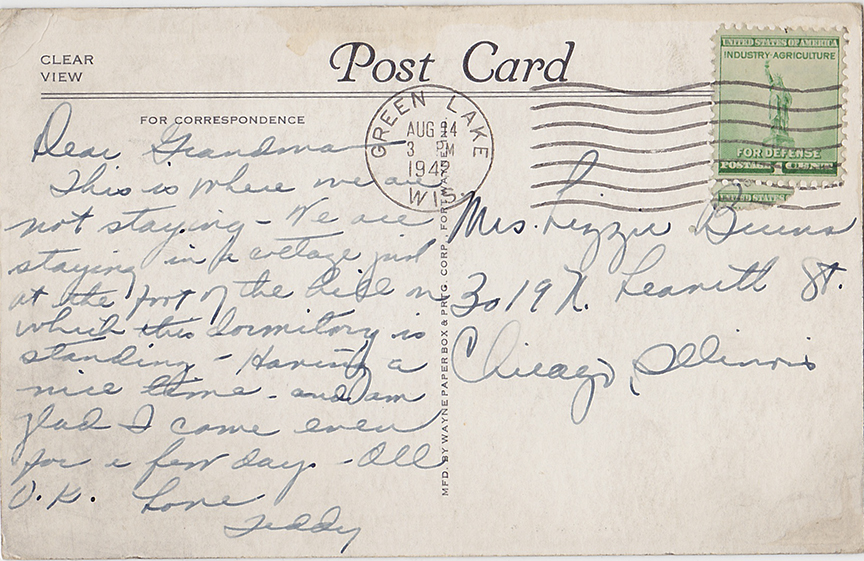 CLEAR
VIEW
Post Card
FOR CORRESPONDENCE
UNITED STATES OF AMERICA
INDUSTRY AGRICULTURE
FOR DEFENSE
POSTAGE 1 CENT
UNITED STATES
GREEN LAKE
AUG 14
3 PM
194
WIS.
Dear Grandma
This is where we are
not staying - We are
staying in a cottage just
at the foot of the hill on
which this dormitory is
standing - Having a
nice time - and am
glad I came even
for a few days - All
O.K. Love
Teddy
MFD. BY WAYNE PAPER BOX & PRTG. CORP., FORT WAYNE, IND.
Mrs. Lizzie Burns
3019 N. Leavitt St.
Chicago, Illinois